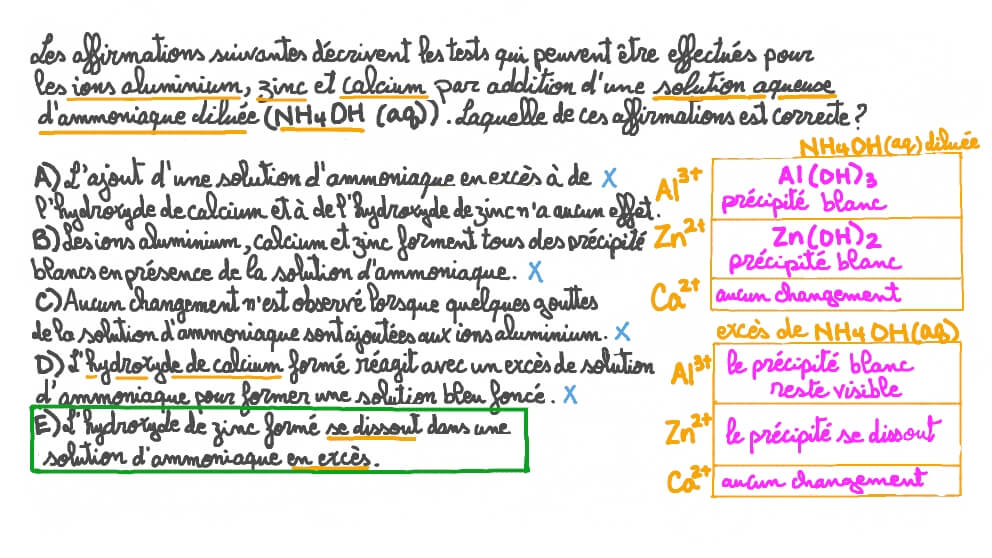 Les affirmations suivantes décrivent les tests qui peuvent être effectués pour
les ions aluminium, zinc et calcium par addition d'une solution aqueuse
d'ammoniaque diluée (NH4OH (aq)). Laquelle de ces affirmations est correcte ?
A) L'ajout d'une solution d'ammoniaque en excès à de X
l'hydroxyde de calcium et à de l'hydroxyde de zinc n'a aucun effet.
B) Les ions aluminium, calcium et zinc forment tous des précipité
blancs en présence de la solution d'ammoniaque. X
C) Aucun changement n'est observé lorsque quelques gouttes
de la solution d'ammoniaque sont ajoutées aux ions aluminium. X
D) L'hydroxyde de calcium formé réagit avec un excès de solution
d'ammoniaque pour former une solution bleu foncé. X
E) L'hydroxyde de zinc formé se dissout dans une
solution d'ammoniaque en excès.
NH4OH(aq) diluée
Al3+ Al(OH)3
précipité blanc
Zn2+ Zn(OH)2
précipité blanc
Ca2+ aucun changement
excès de NH4OH(aq)
Al3+ le précipité blanc
reste visible
Zn2+ le précipité se dissout
Ca2+ aucun changement